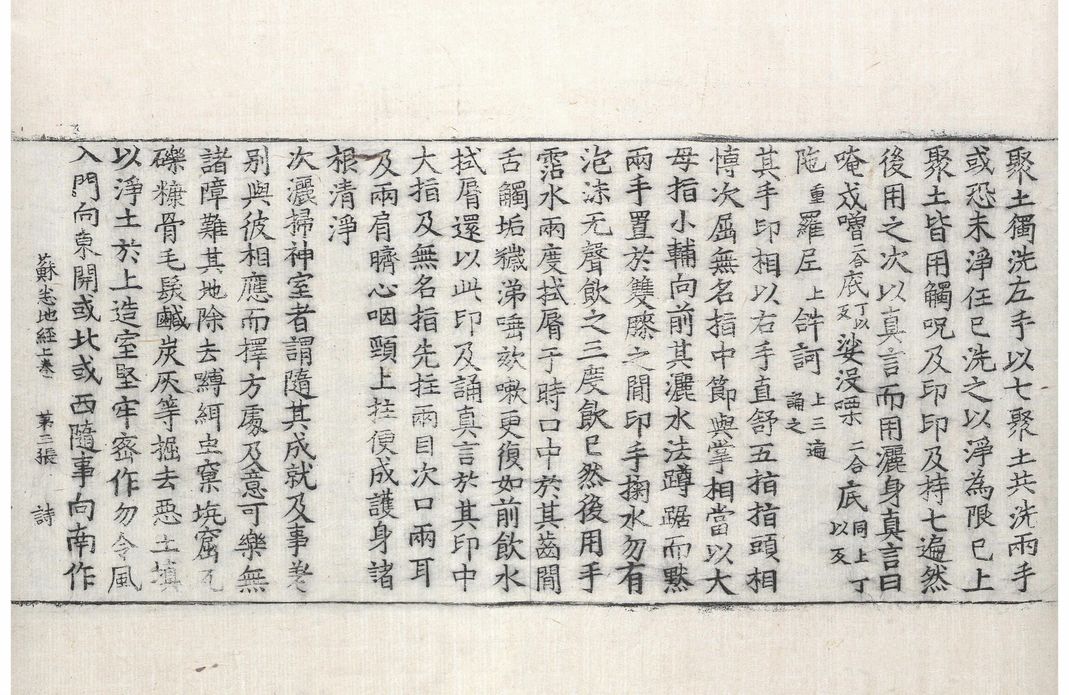 聚土獨洗左手以七聚土共洗兩手
或恐未淨任已洗之以淨為限已上
聚土皆用觸呪及印印及持七遍然
後用之次以真言而用灑身真言曰
唵戍嚕二合底丁以反娑没㗚二合底同上丁以反
陁重羅尼上訶上三遍誦之
其手印相以右手直舒五指指頭相
博次屈無名指中節與掌相當以大
母指小輔向前其灑水法蹲踞而默
兩手置於雙膝之間印手掬水勿有
泡沫无聲飲之三度飲已然後用手
霑水兩度拭脣于時口中於其齒間
舌觸垢穢涕唾欬嗽更復如前飲水
拭脣還以此印及誦真言於其印中
大指及無名指先拄兩目次口兩耳
及兩肩臍心咽頸上拄便成護身諸
根清淨
次灑掃神室者謂隨其成就及事差
別與彼相應而擇方處及意可樂無
諸障難其地除去縛緷虫窠坑窟瓦
礫糠骨毛髮鹹炭灰等掘去惡土填
以淨土於上造室堅牢密作勿令風
入門向東開或北或西隨事向南作
蘇悉地経上卷 第二張 詩